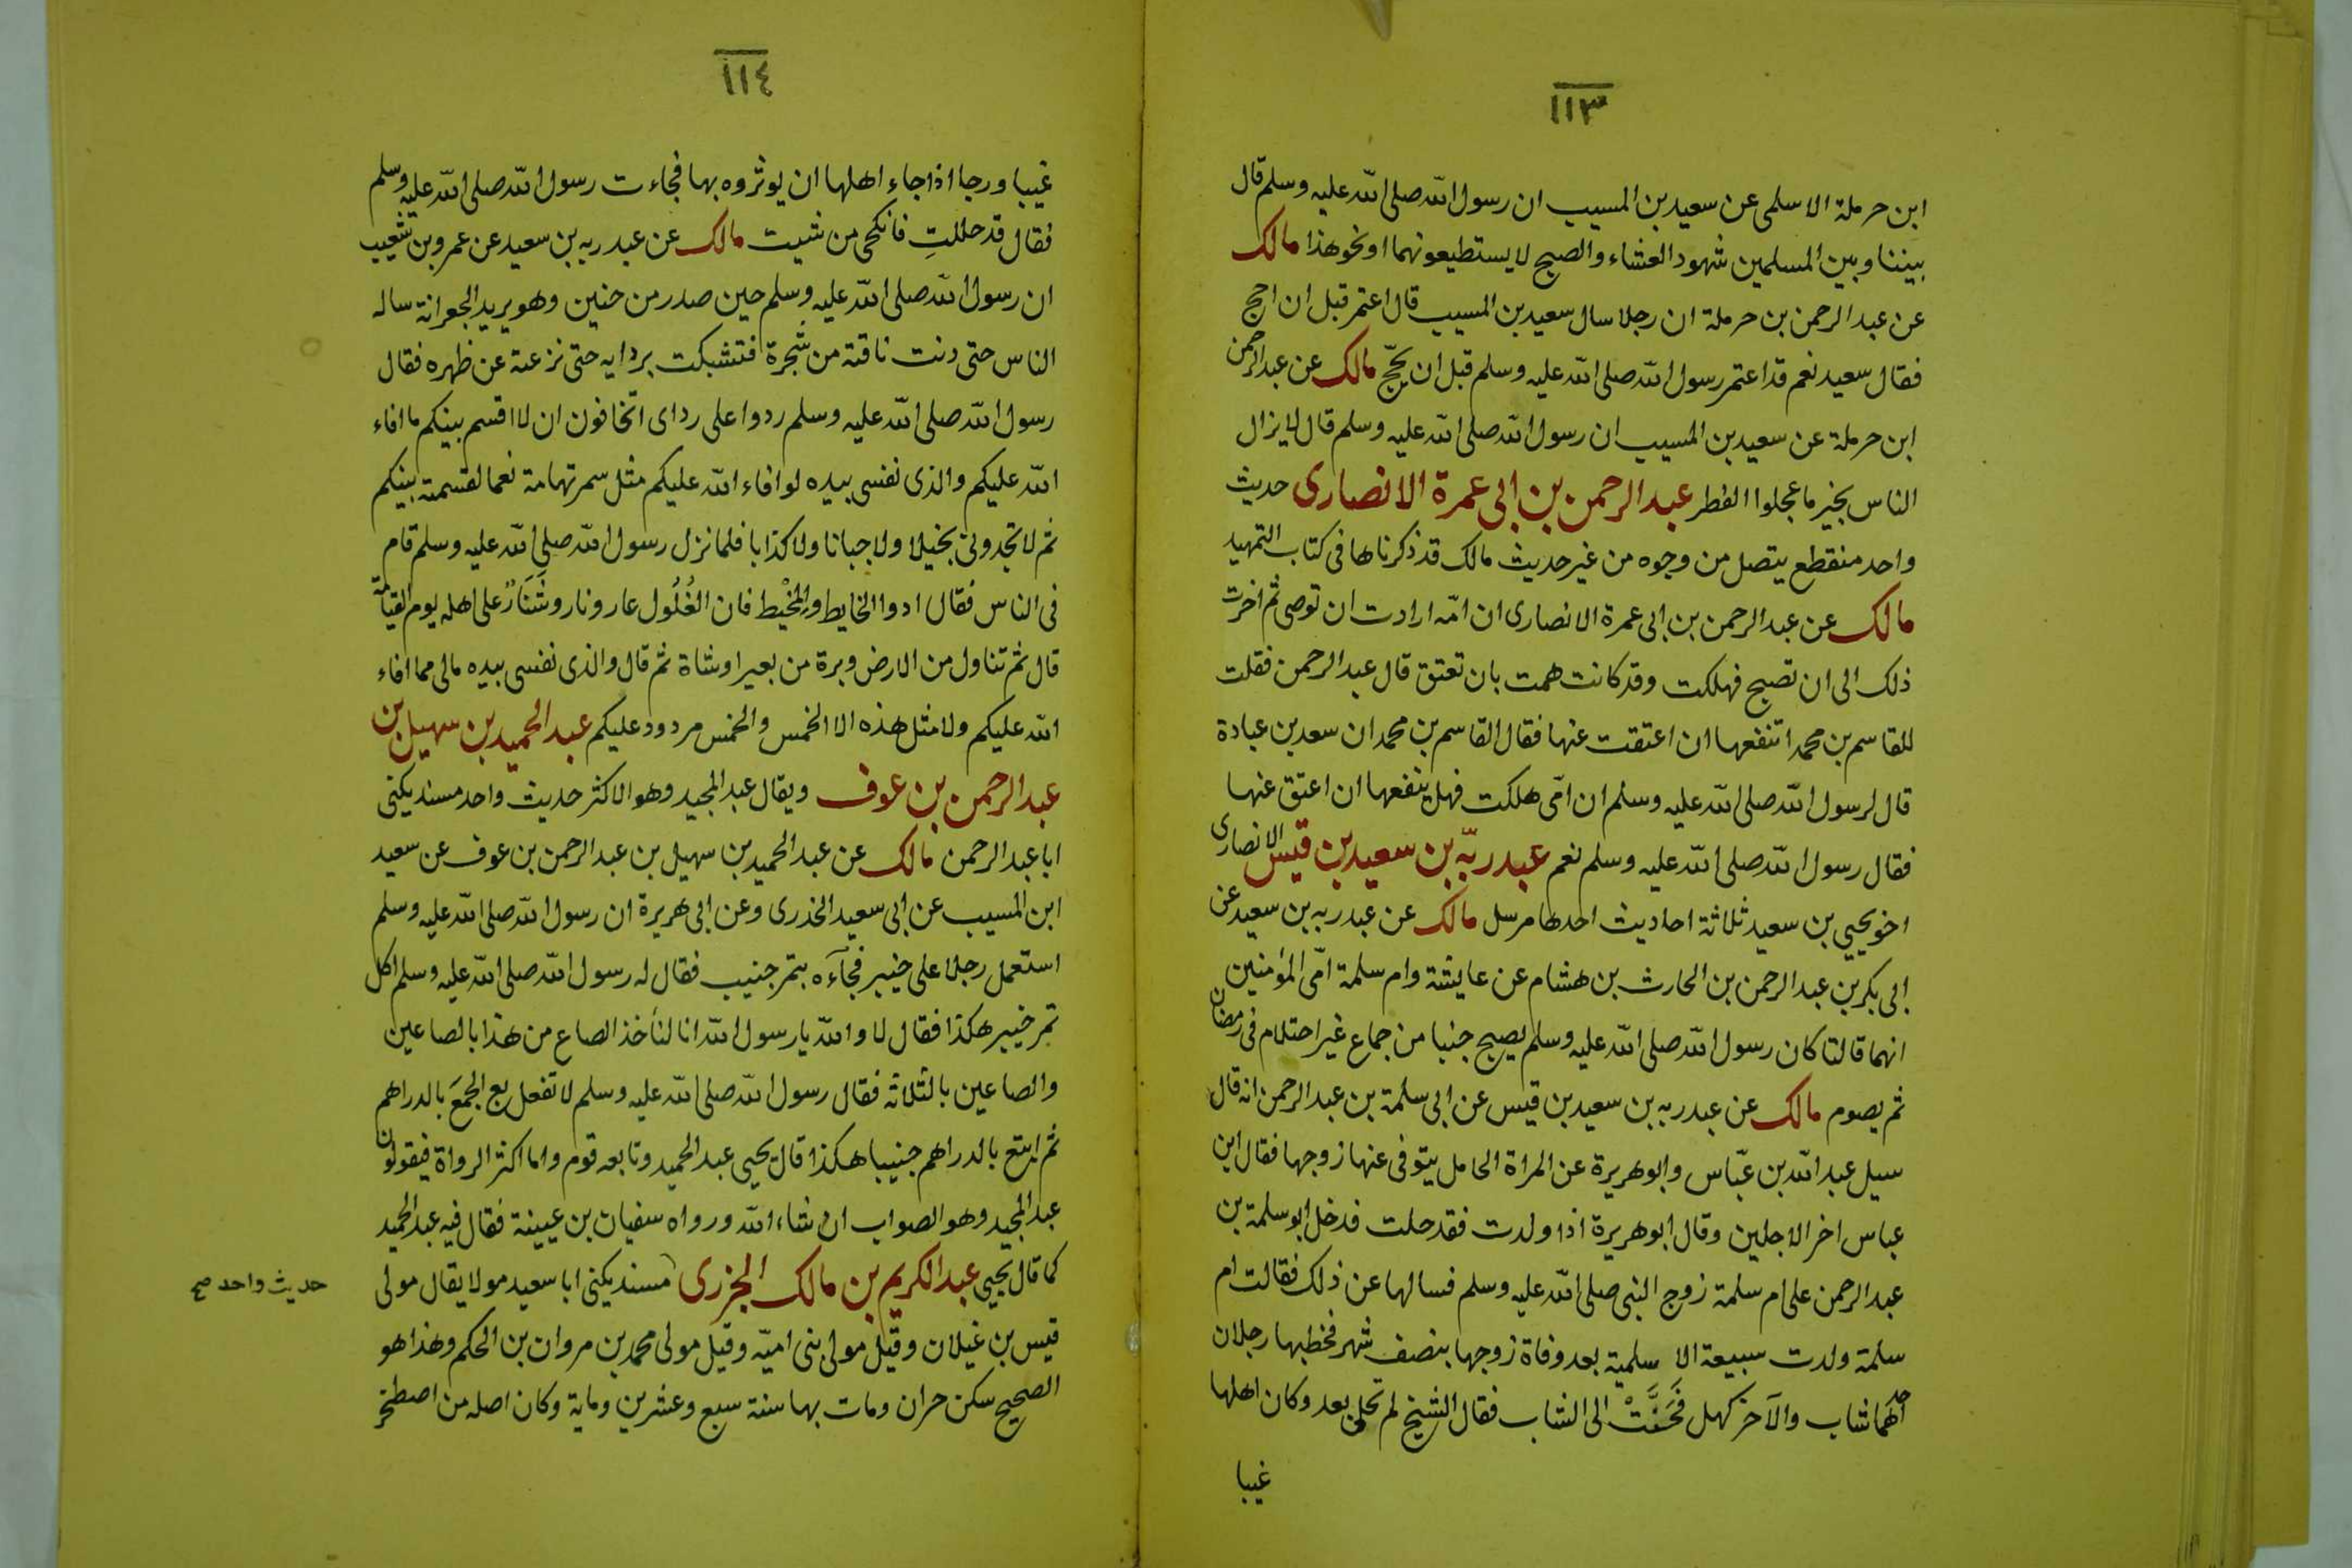 ١١٣
ابن حرملة الاسلمى عن سعيد بن المسيب ان رسول الله صلى الله عليه وسلم قال
بيننا وبين المسلمين شهود العشاء والصبح لا يستطيعونهما او نحو هذا مالك
عن عبد الرحمن بن حرملة ان رجلا سال سعيد بن المسيب قال اعتمر قبل ان احج
فقال سعيد نعم قد اعتمر رسول الله صلى الله عليه وسلم قبل ان يحجّ مالك عن عبد الرحمن
ابن حرملة عن سعيد بن المسيب ان رسول الله صلى الله عليه وسلم قال لا يزال
الناس بخير ما عجلوا الفطر عبد الرحمن بن ابى عمرة الانصارى حديث
واحد منقطع يتصل من وجوه من غير حديث مالك قد ذكرناها فى كتاب التمهيد
مالك عن عبد الرحمن بن ابى عمرة الانصارى ان امّه ارادت ان توصى ثم اخرت
ذلك الى ان تصبح فهلكت وقد كانت همت بان تعتق قال عبد الرحمن فقلت
للقاسم بن محمد اتنفعها ان اعتقت عنها فقال القاسم بن محمد ان سعد بن عبادة
قال لرسول الله صلى الله عليه وسلم ان امّى هلكت فهل ينفعها ان اعتق عنها
فقال رسول الله صلى الله عليه وسلم نعم عبد ربّه بن سعيد بن قيس الانصارى
اخو يحيي بن سعيد ثلاثة احاديث احدها مرسل مالك عن عبد ربه بن سعيد عن
ابى بكر بن عبد الرحمن بن الحارث بن هشام عن عايشة وام سلمة امّى المؤمنين
انهما قالتا كان رسول الله صلى الله عليه وسلم يصبح جنبا من جماع غير احتلام فى رمضان
ثم يصوم مالك عن عبد ربه بن سعيد بن قيس عن ابى سلمة بن عبد الرحمن انه قال
سيل عبد الله بن عبّاس وابو هريرة عن المراة الحامل يتوفى عنها زوجها فقال ابن
عباس اخر الاجلين وقال ابو هريرة اذا ولدت فقد حلت فدخل ابو سلمة بن
عبد الرحمن على ام سلمة زوج النبى صلى الله عليه وسلم فسالها عن ذلك فقالت ام
سلمة ولدت سبيعة الاسلمية بعد وفاة زوجها بنصف شهر فخطبها رجلان
احدهما شاب والآخر كهل فَحَنَّتْ الى الشاب فقال الشيخ لم تحلى بعد وكان اهلها
غيبا
١١٤
غيبا ورجا اذا جاء اهلها ان يوثروه بها فجاءت رسول الله صلى الله عليه وسلم
فقال قد حللتِ فانكحى من شيت مالك عن عبد ربه بن سعيد عن عمرو بن شعيب
ان رسول الله صلى الله عليه وسلم حين صدر من حنين وهو يريد الجعرانة ساله
الناس حتى دنت ناقته من شجرة فتشبكت بردايه حتى نزعته عن ظهره فقال
رسول الله صلى الله عليه وسلم ردوا على رداى اتخافون ان لا اقسم بينكم ما افاء
الله عليكم والذى نفسى بيده لو افاء الله عليكم مثل سمر تهامة نعما لقسمته بينكم
ثم لا تجدونى بخيلا ولا جبانا ولا كذابا فلما نزل رسول الله صلى الله عليه وسلم قام
فى الناس فقال ادوا الخايط والمخْيط فان الغُلُول عار ونار وشَنَارٌ على اهله يوم القيامة
قال ثم تناول من الارض وبرة من بعير او شاة ثم قال والذى نفسى بيده مالى مما افاء
الله عليكم ولا مثل هذه الا الخمس والخمس مردود عليكم عبد الحميد بن سهيل بن
عبد الرحمن بن عوف ويقال عبد المجيد وهو الاكثر حديث واحد مسند يكنى
ابا عبد الرحمن مالك عن عبد الحميد بن سهيل بن عبد الرحمن بن عوف عن سعيد
ابن المسيب عن ابى سعيد الخذرى وعن ابى هريرة ان رسول الله صلى الله عليه وسلم
استعمل رجلا على خيبر فجآءه بتمر جنيب فقال له رسول الله صلى الله عليه وسلم اكل
تمر خيبر هكذا فقال لا والله يا رسول الله انا لنأخذ الصاع من هذا بالصاعين
والصاعين بالثلاثة فقال رسول الله صلى الله عليه وسلم لا تفعل بع الجمَعَ بالدراهم
ثم ابتع بالدراهم جنيبا هكذا قال يحيى عبد الحميد وتابعه قوم واما اكثر الرواة فيقولون
عبد المجيد وهو الصواب ان شاء الله ورواه سفيان بن عيينة فقال فيه عبد الحميد
كما قال يحيى عبد الكريم بن مالك الجزرى مسند يكنى ابا سعيد مولا يقال مولى
حديث واحد صح
قيس بن غيلان وقيل مولى بنى اميّه وقيل مولى محمد بن مروان بن الحكم وهذا هو
الصحيح سكن حران ومات بها سنة سبع وعشرين وماية وكان اصله من اصطخر